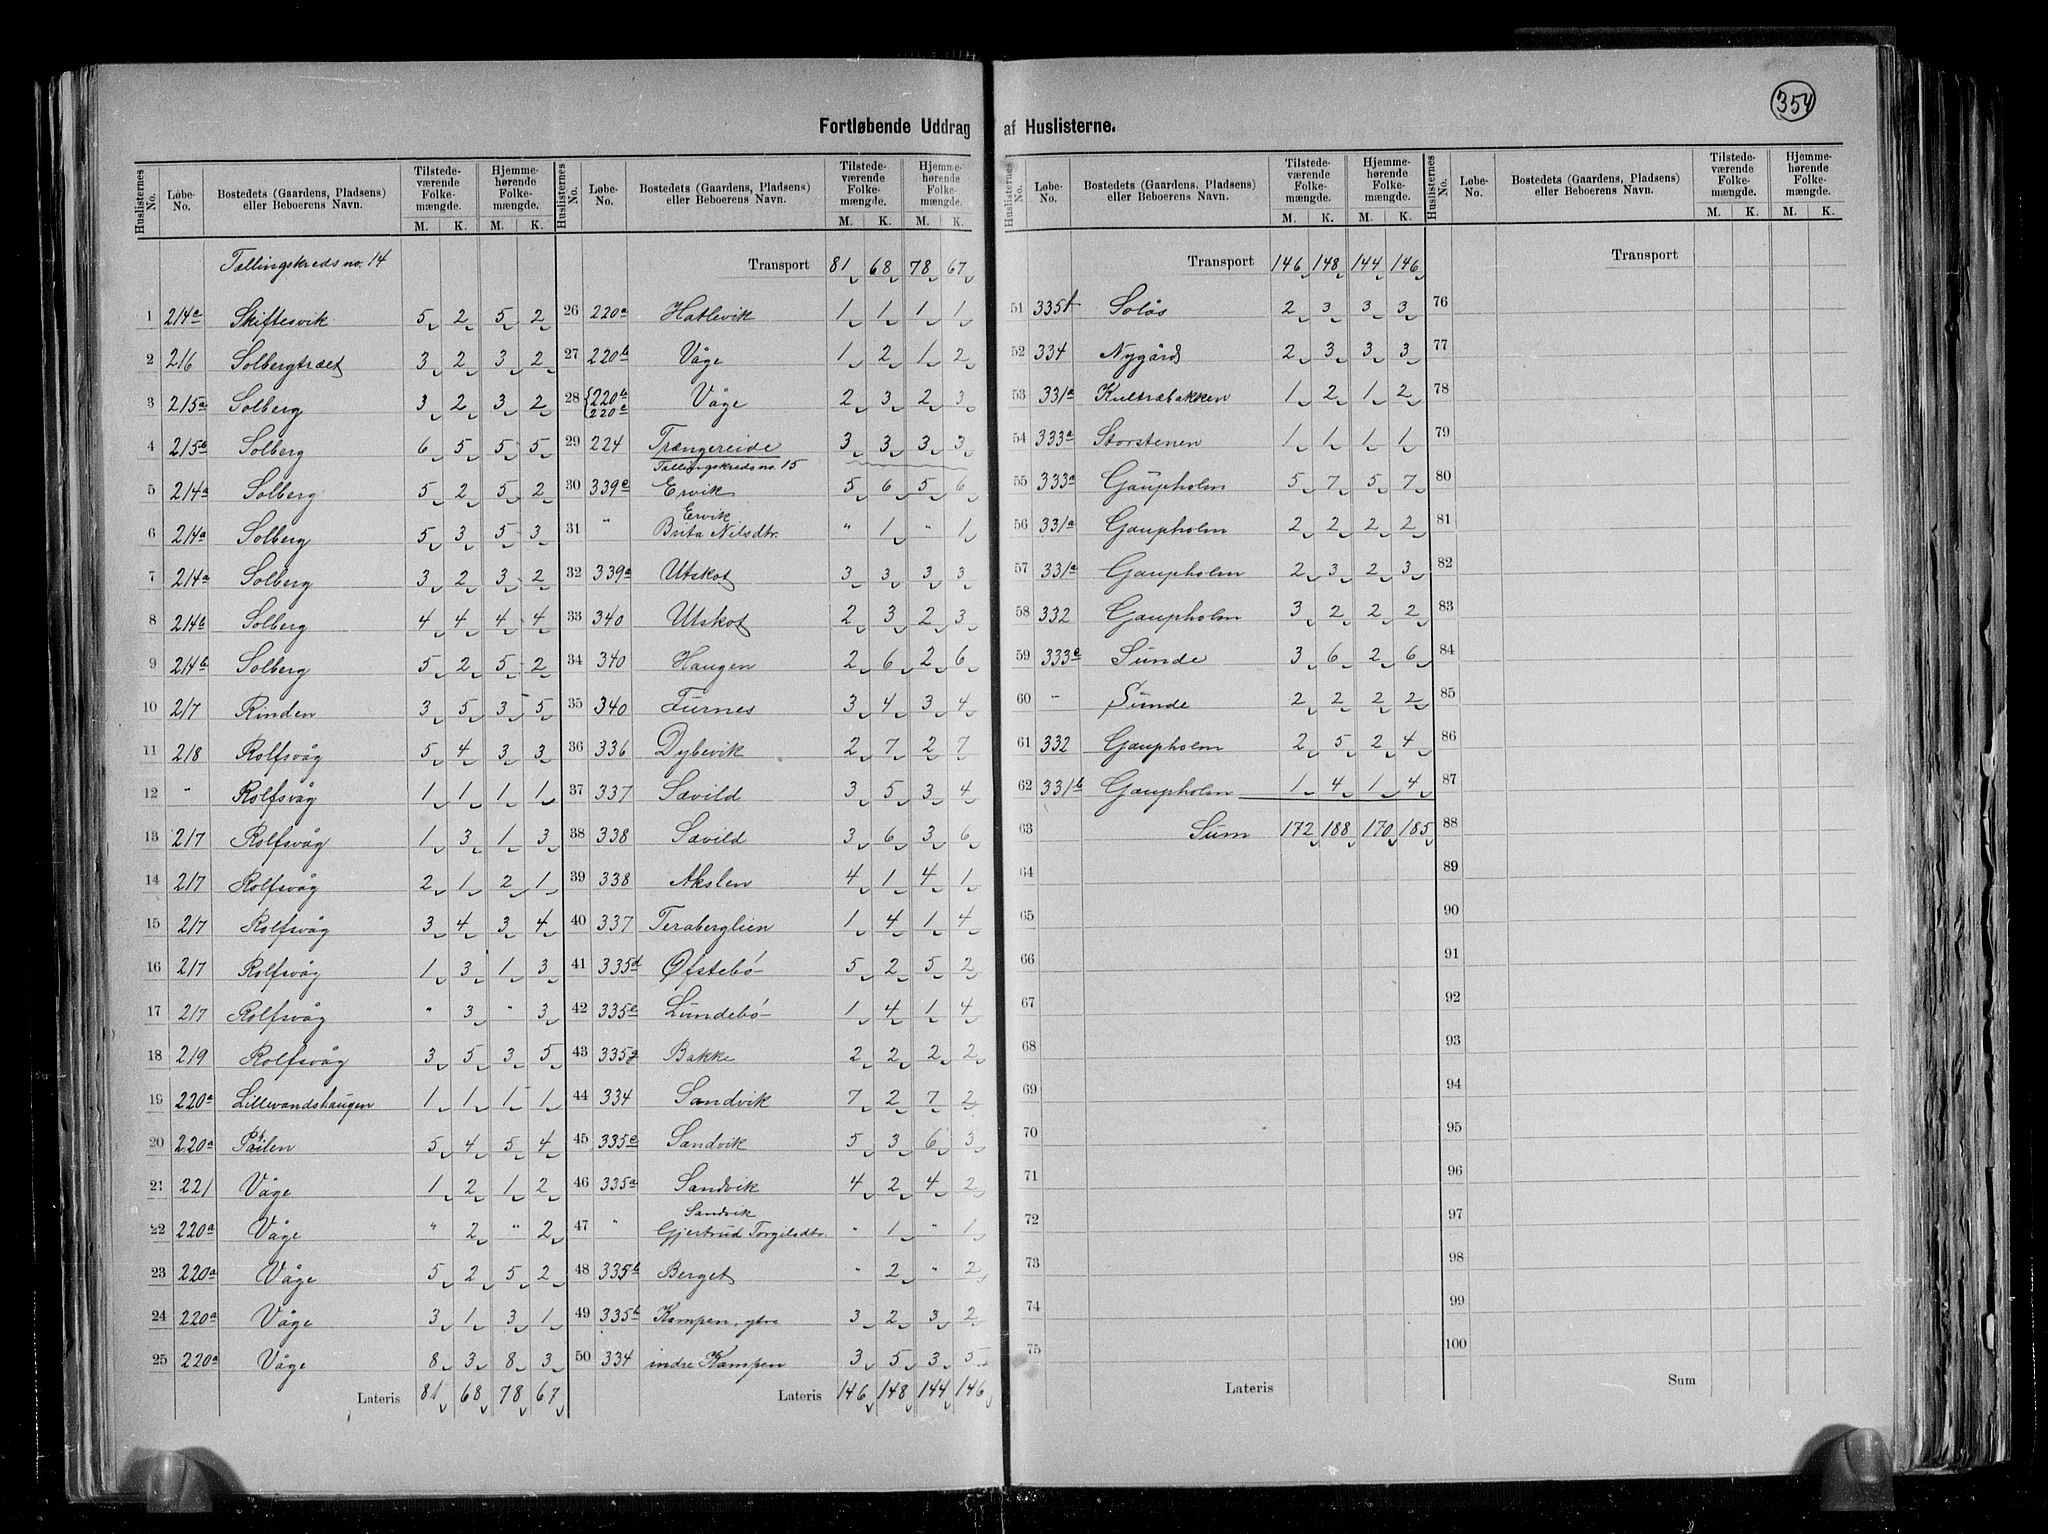 354
Fortløbende Uddrag af Huslisterne.
Huslisternes No. Løbe-No. Bostedets (Gaardens, Pladsens) eller Beboerens Navn. Tilstedeværende Folkemængde. M. K. Hjemmehørende Folkemængde. M. K.
Tællingskreds no. 14
1 214a Skiftesvik 5 2 5 2
2 216 Solbergtræet 3 2 3 2
3 215a Solberg 3 2 3 2
4 215b Solberg 6 5 5 5
5 214a Solberg 5 2 5 2
6 214a Solberg 5 3 5 3
7 214a Solberg 3 2 3 2
8 214b Solberg 4 4 4 4
9 214b Solberg 5 2 5 2
10 217 Rinden 3 5 3 5
11 218 Rolfsvåg 5 4 3 3
12 " Rolfsvåg 1 1 1 1
13 217 Rolfsvåg 1 3 1 3
14 217 Rolfsvåg 2 1 2 1
15 217 Rolfsvåg 3 4 3 4
16 217 Rolfsvåg 1 3 1 3
17 217 Rolfsvåg " 3 " 3
18 219 Rolfsvåg 3 5 3 5
19 220a Lillevandshaugen 1 1 1 1
20 220a 5 4 5 4
21 221 Våge 1 2 1 2
22 220a Våge " 2 " 2
23 220a Våge 5 2 5 2
24 220a Våge 3 1 3 1
25 220a Våge 8 3 8 3
Lateris 81 68 78 67
Huslisternes No. Løbe-No. Bostedets (Gaardens, Pladsens) eller Beboerens Navn. Tilstedeværende Folkemængde. M. K. Hjemmehørende Folkemængde. M. K.
Transport 81 68 78 67
26 220a Hatlevik 1 1 1 1
27 220b Våge 1 2 1 2
28 220b 220c Våge 2 3 2 3
29 224 Trængereide 3 3 3 3
Tællingskreds no. 15
30 339c Ervik 5 6 5 6
Ervik
31 " Brita Nilsdtr. " 1 " 1
32 339a Utskot 3 3 3 3
33 340 Utskot 2 3 2 3
34 340 Haugen 2 6 2 6
35 340 Furnes 3 4 3 4
36 336 Dybevik 2 7 2 7
37 337 Sævild 3 5 3 4
38 338 Sævild 3 6 3 6
39 338 Akslen 4 1 4 1
40 337 Teraberglien 1 4 1 4
41 335d Øfstebø 5 2 5 2
42 335e Lundebø 1 4 1 4
43 335g Bakke 2 2 2 2
44 334 Sandvik 7 2 7 2
45 335c Sandvik 5 3 6 3
46 335a Sandvik 4 2 4 2
Sandvik
47 " Gjertrud Torgilsdtr. " 1 " 1
48 335b Berget " 2 " 2
49 335b Kampen, ytre 3 2 3 2
50 334 indre Kampen 3 5 3 5
Lateris 146 148 144 146
Huslisternes No. Løbe-No. Bostedets (Gaardens, Pladsens) eller Beboerens Navn. Tilstedeværende Folkemængde. M. K. Hjemmehørende Folkemængde. M. K.
Transport 146 148 144 146
51 335f Solås 2 3 3 3
52 334 Nygård 2 3 3 3
53 331a Kultræbakken 1 2 1 2
54 333a Storstenen 1 1 1 1
55 333a Gaupholm 5 7 5 7
56 331a Gaupholm 2 2 2 2
57 331a Gaupholm 2 3 2 3
58 332 Gaupholm 3 2 2 2
59 333c Sunde 3 6 2 6
60 " Sunde 2 2 2 2
61 332 Gaupholm 2 5 2 4
62 331b Gaupholm 1 4 1 4
63 Sum 172 188 170 185
64
65
66
67
68
69
70
71
72
73
74
75
Lateris
Huslisternes No. Løbe-No. Bostedets (Gaardens, Pladsens) eller Beboerens Navn. Tilstedeværende Folkemængde. M. K. Hjemmehørende Folkemængde. M. K.
Transport
76
77
78
79
80
81
82
83
84
85
86
87
88
89
90
91
92
93
94
95
96
97
98
99
100
Sum